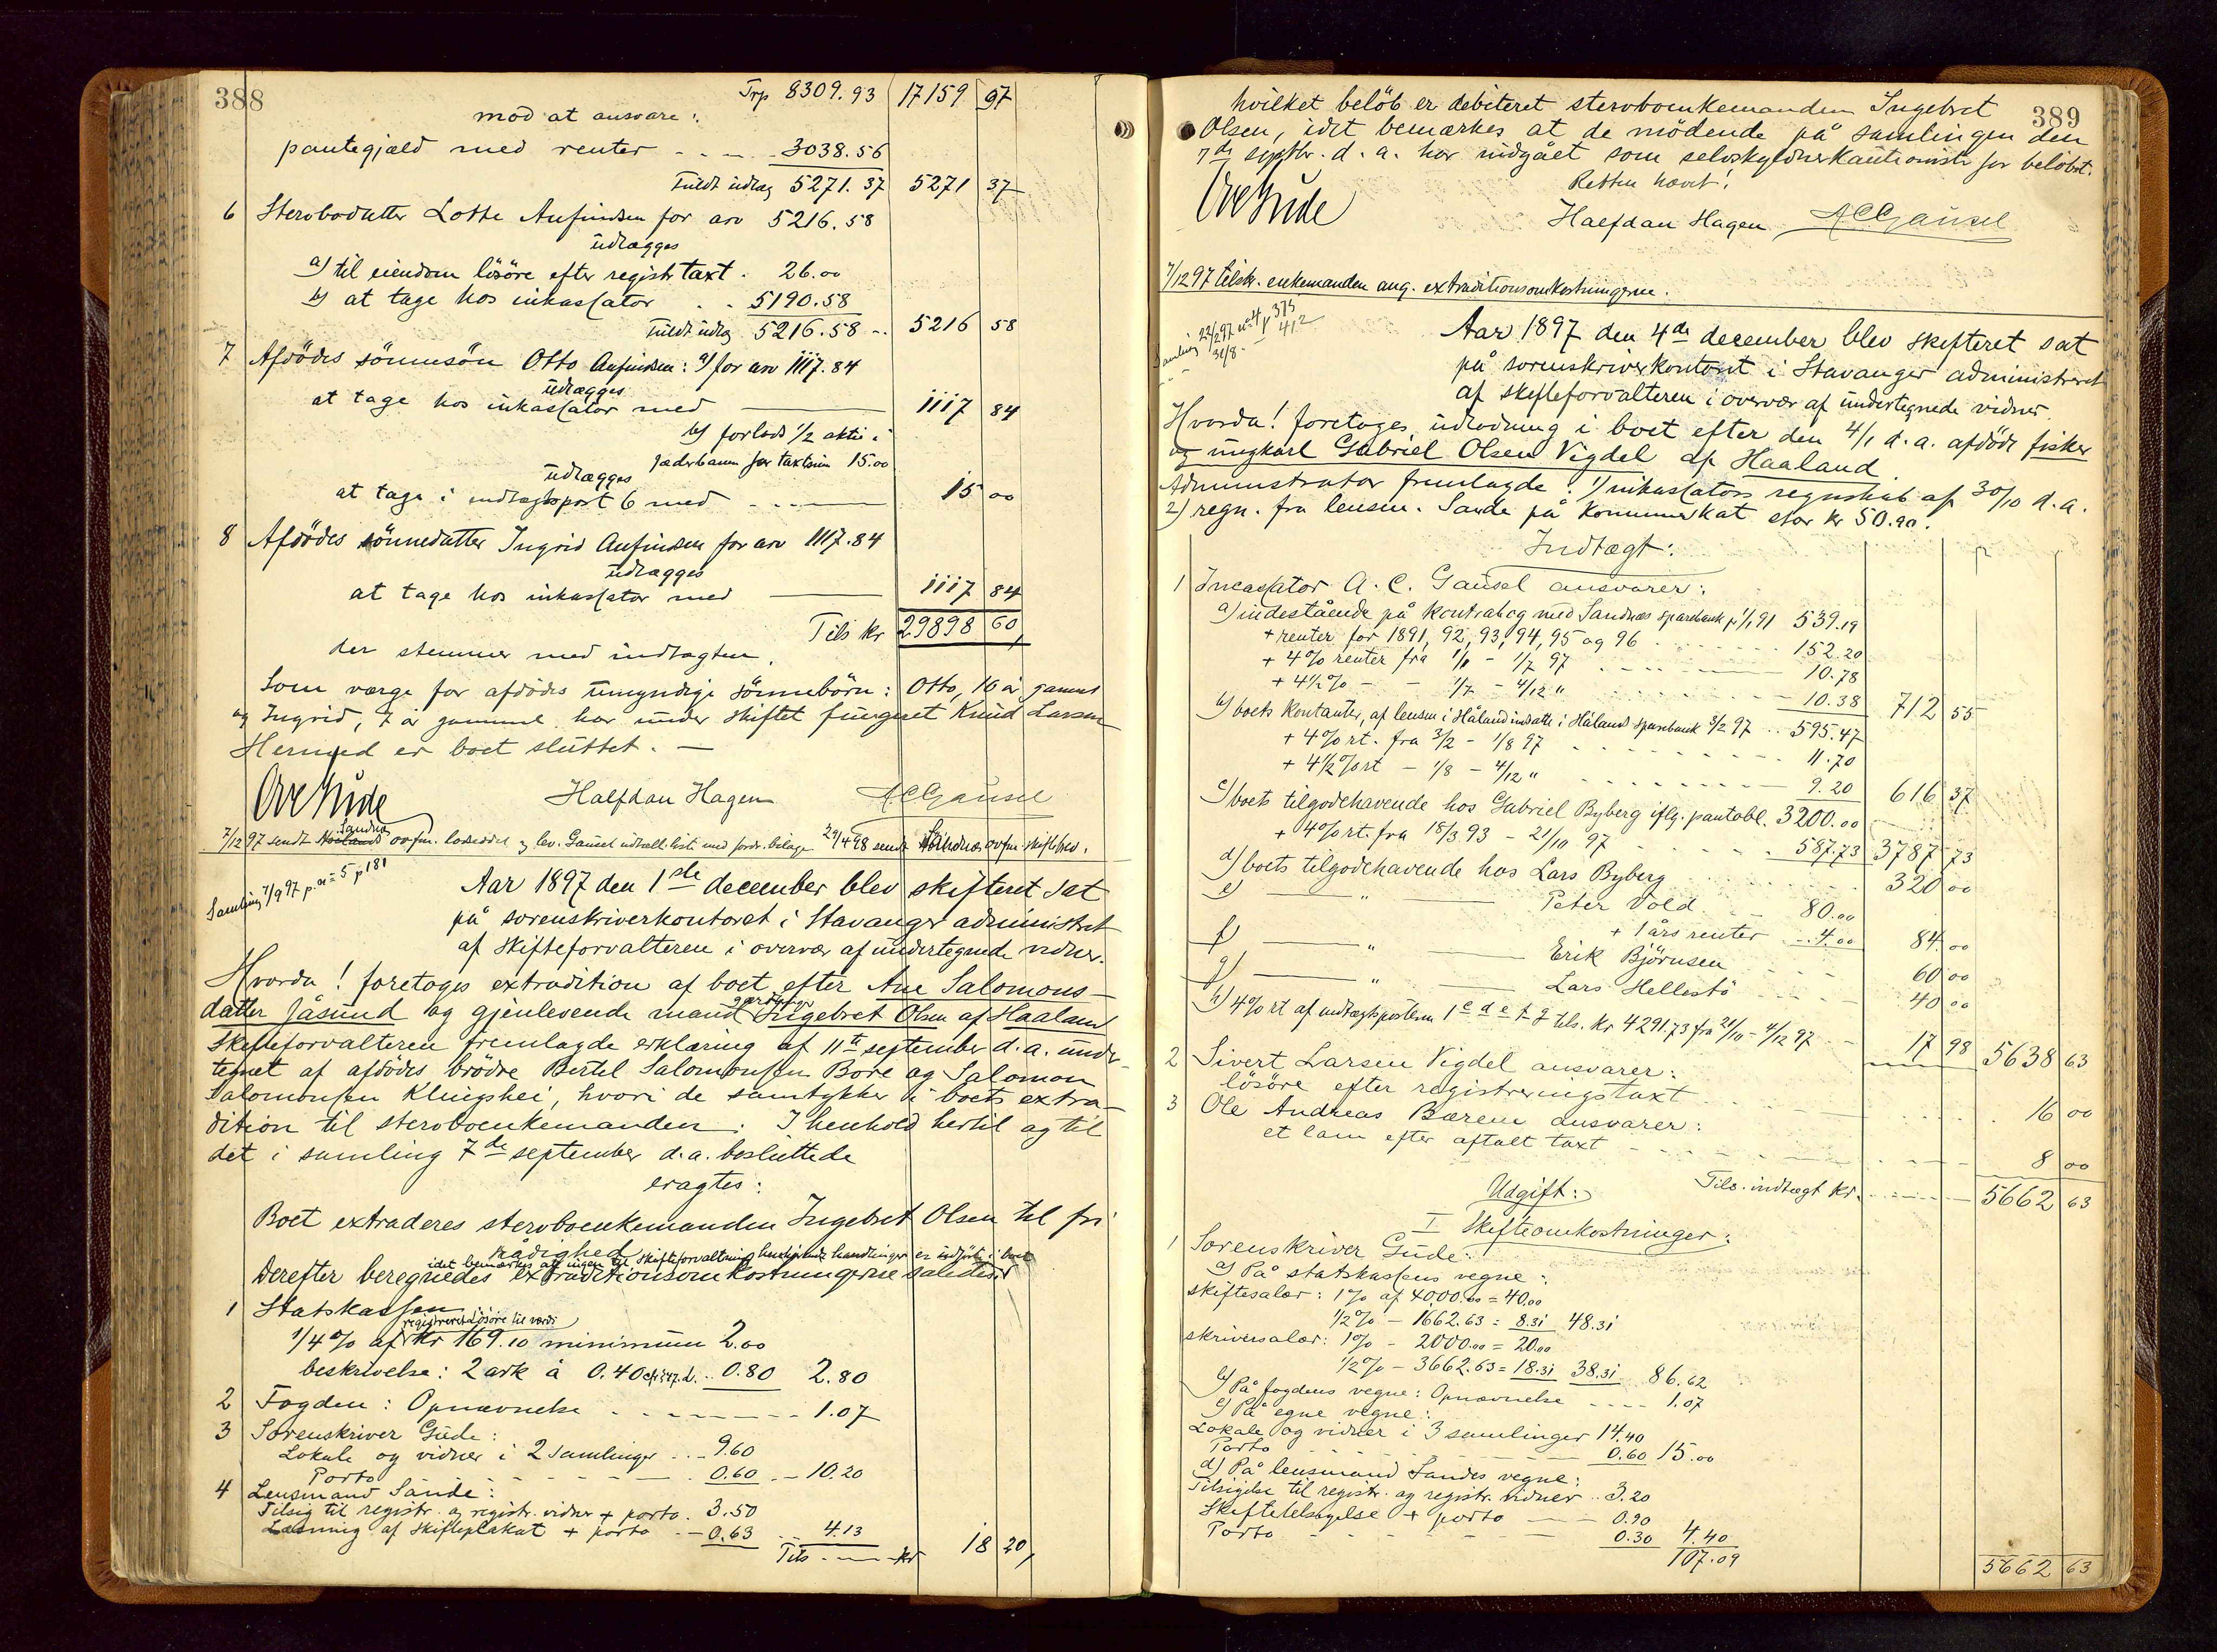 388
Trp 8309.93 17159 97
mod at ansvare:
pantegjæld med renter - - - 3038.56
Fuldt udlæg 5271.37 5271 37
6 Stervbodatter Lotte Anfindsen for arv 5216.58
udlægges
a) til eiendom lösöre efter registr taxt . 26.00
b) at tage hos inkassator . . 5190.58
Fuldt udlæg 5216.58 - . 5216 58
7 Afdödes sönnesön Otto Anfindsen: a) for arv 1117.84
udlægges
at tage hos inkassator med 1117 84
b) forlods 1/2 aktie i
Jæderbanen for taxtsum 15.00
udlægges
at tage i indtægtspost 6 med - - - 15 00
8 Afdödes sönnedatter Ingrid Anfindsen for arv 1117.84
udlægges
at tage hos inkassator med 1117 84
Tils kr 29898 60
der stemmer med indtægten.
Som værge for afdödes umyndige sönnebörn: Otto, 16 år gammel
og Ingrid, 7 år gammel har under skiftet fungeret Knud Larsen
Hermed er boet sluttet. —
Ove Gude Halfdan Hagen ACGausel
7/12 97 sendt Sandnæs ovfm. lodseddel og lev. Gausel udtall. list med fordr. bilage 29/4 98 sendt ovfm. skiftebrev.
Samling 7/9 97 p. n=5 p 181
Aar 1897 den 1ste december blev skifteret sat
på sorenskriverkontoret i Stavanger administreret
af skifteforvalteren i overvær af undertegnede vidner.
Hvorda! foretoges extradition af boet efter Ane Salomons-
datter Jåsund og gjenlevende mand gårdbruger Ingebret Olsen af Haaland
Skifteforvalteren fremlagde erklæring af 11te september d.a. under-
tegnet af afdödes brödre Bertel Salomonsen Bore og Salomon
Salomonsen Klingshei, hvori de samtykker i boets extra-
dition til stervboenkemanden. I henhold hertil og til
det i samling 7de september d.a. besluttede
eragtes:
Boet extraderes stervboenkemanden Ingebret Olsen til fri
rådighed
idet bemærkes at ingen til skifteforvaltning henhörende handlinger er udfört i boet
Derefter beregnedes extraditionsomkostningerne således:
1 Statskassen
registreret lösöre til værdi
1/4 % af kr 169.10 minimum 2.00
beskrivelse: 2 ark à 0.40 . . 0.80 2.80
2 Fogden: Opnævnelse . - - - - - - 1.07
3 Sorenskriver Gude:
Lokale og vidner i 2 samlinger . . 9.60
Porto - - - - - - . 0.60 . - 10.20
4 Lensmand Sande:
Tilsig til registr. og registr. vidner + porto. 3.50
Læsning af skifteplakat + porto - - 0.63 . . 4.13
Tils - - - kr 18 20
389
hvilket belöb er debiteret stervboenkemanden Ingebret
Olsen, idet bemærkes at de mödende på samlingen den
7de septbr. d.a. har indgået som selvskyldnerkautionister for belöbet.
Retten hævet!
Ove Gude Halfdan Hagen ACGausel
7/12 97 tilskr. enkemanden ang. extraditionsomkostningerne.
Samling 22/2 97 n=4 p 373
- 31/8 - - 412
Aar 1897 den 4de december blev skifteret sat
på sorenskriverkontoret i Stavanger administreret
af skifteforvalteren i overvær af undertegnede vidner
Hvorda! foretoges udlodning i boet efter den 4/1 d.a. afdöde fisker
og ungkarl Gabriel Olsen Vigdel af Haaland
Administrator fremlagde: 1) inkassators regnskab af 30/10 d.a.
2) regn. fra lensm. Sande på kommuneskat stor kr 50.90.
Indtægt:
1 Incassator A. C. Gausel ansvarer:
a) indestående på kontrabog med Sandnæs Sparebank p 1/1 91 539.19
+ renter for 1891, 92, 93, 94, 95 og 96 . . . . 152.20
+ 4% renter fra 1/1 - 1/7 97 - - - - 10.78
+ 4½% - - 1/7 - 4/12 " . . . . 10.38 712 55
b) boets kontanter, af lensm i Håland indsatte i Hålands sparebank 3/2 97 . . 595.47
+ 4% rt. fra 3/2 - 1/8 97 - - - - 11.70
+ 4½% rt - 1/8 - 4/12 " - - - - 9.20 616 37
c) boets tilgodehavende hos Gabriel Byberg iflg. pantobl. 3200.00
+ 4% rt. fra 18/3 93 - 21/10 97 - - - 587.73 3787 73
d) boets tilgodehavende hos Lars Byberg . . . . 320 00
e) — " — Peter Vold . - 80.00
+ 1 års renter - . 4.00 84.00
f) — " — Erik Björnsen - - - 60 00
g) — " — Lars Hellestö - - - 40 00
h) 4% rt af indtægtsposterne 1 c d e f g tils. kr 4291.73 fra 21/10 - 4/12 97 - 17 98 5638 63
2 Sivert Larsen Vigdel ansvarer:
lösöre efter registreringstaxt . . . . 16 00
3 Ole Andreas Bærem ansvarer:
et lam efter aftalt taxt - - - - 8 00
Tils. indtægt kr. - - - - 5662 63
Udgift:
I Skifteomkostninger:
1 Sorenskriver Gude:
a) På statskassens vegne:
skiftesalær: 1% af 4000.00 = 40.00
1/2% - 1662.63 = 8.31 48.31
skriversalær: 1% - 2000.00 = 20.00
1/2% - 3662.63 = 18.31 38.31 86.62
b) På fogdens vegne: Opnævnelse - - - - 1.07
c) På egne vegne:
Lokale og vidner i 3 samlinger 14.40
Porto - - - - 0.60 15.00
d) På lensmand Sandes vegne:
Tilsigelse til registr. og registr. vidner . . 3.20
Skiftetilsigelse + porto - - - 0.90
Porto - - - - 0.30 4.40
107.09
5662 63